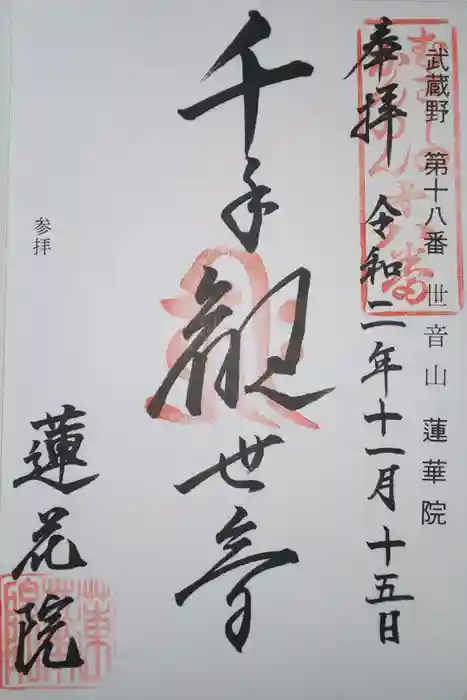 武蔵野 第十八番 世音山 蓮華院
奉拝 令和二年十一月十五日
千手観世音
参拝
蓮花院